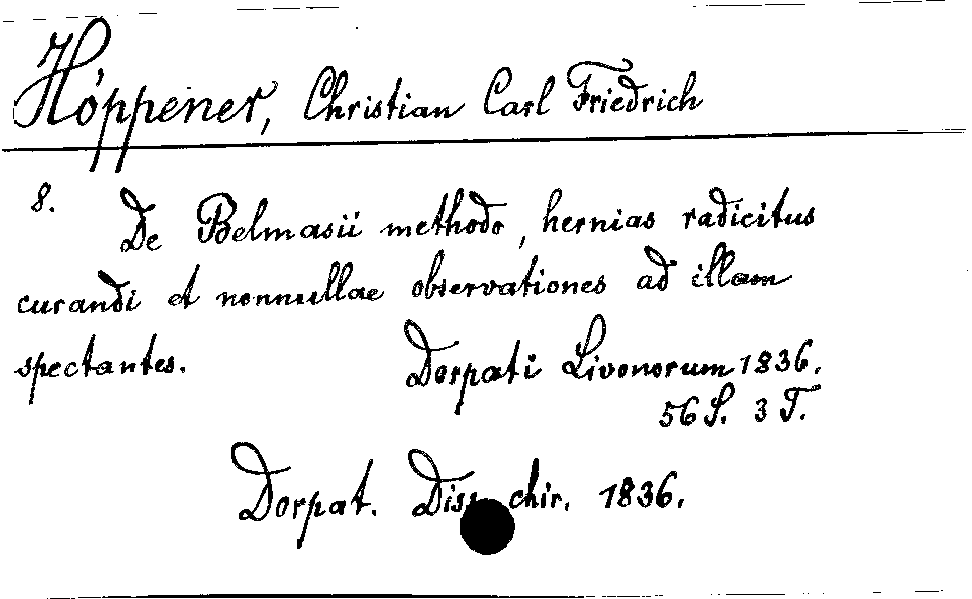 Höppener, Christian Carl Friedrich
8.
De Belmasii methodo, hernias radicitus
curandi et nonnullae observationes ad illam
spectantes. Dorpati Livonorum 1836.
56 S. 3 T.
Dorpat. Diss. chir. 1836.